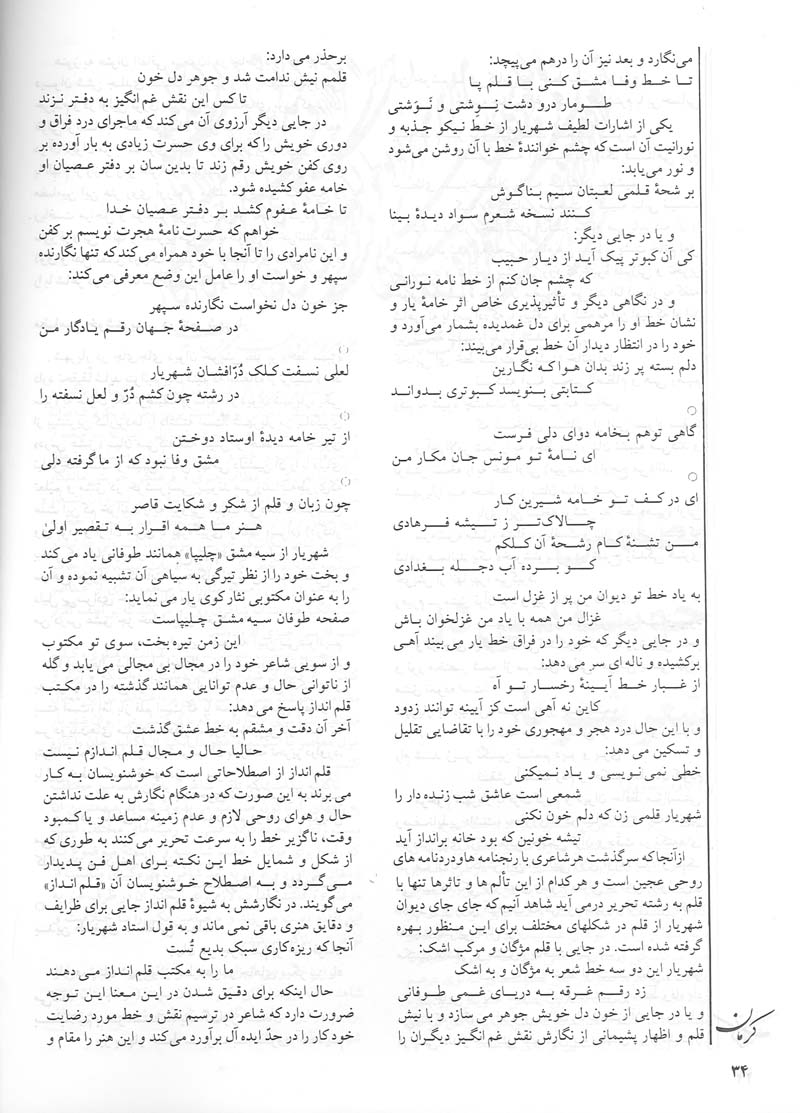 می‌نگارد و بعد نیز آن را درهم می‌پیچد:
تا خط وفا مشق کنی با قلم پا
طومار درو دشت نِوِشتی و نَوَشتی
یکی از اشارات لطیف شهریار از خط نیکو جذبه و
نورانیت آن است که چشم خوانندهٔ خط با آن روشن می‌شود
و نور می‌یابد:
بر شحهٔ قلمی لعبتان سیم بناگوش
کنند نسخه شعرم سواد دیدهٔ بینا
و یا در جایی دیگر:
کی آن کبوتر پیک آید از دیار حبیب
که چشم جان کنم از خط نامه نورانی
و در نگاهی دیگر و تأثیرپذیری خاص اثر خامهٔ یار و
نشان خط او را مرهمی برای دل غمدیده بشمار می‌آورد و
خود را در انتظار دیدار آن خط بی‌قرار می‌بیند:
دلم بسته پر زند بدان هوا که نگارین
کتابتی بنویسد کبوتری بدواند
○
گاهی توهم بخامه دوای دلی فرست
ای نامهٔ تو مونس جان مکار من
○
ای در کف تو خامه شیرین کار
چالاک‌تر ز تیشه فرهادی
من تشنهٔ کام رشحهٔ آن کلکم
کو برده آب دجله بغدادی
به یاد خط تو دیوان من پر از غزل است
غزال من همه با یاد من غزلخوان باش
و در جایی دیگر که خود را در فراق خط یار می بیند آهی
برکشیده و ناله ای سر می دهد:
از غبار خط آیینهٔ رخسار تو آه
کاین نه آهی است کز آیینه توانند زدود
و با این حال درد هجر و مهجوری خود را با تقاضایی تقلیل
و تسکین می دهد:
خطی نمی نویسی و یاد نمیکنی
شمعی است عاشق شب زنده دار را
شهریار قلمی زن که دلم خون نکنی
تیشه خونین که بود خانه برانداز آید
ازآنجا که سرگذشت هر شاعری با رنجنامه ها و دردنامه های
روحی عجین است و هر کدام از این تألم ها و تاثرها تنها با
قلم به رشته تحریر درمی آید شاهد آنیم که جای جای دیوان
شهریار از قلم در شکلهای مختلف برای این منظور بهره
گرفته شده است. در جایی با قلم مژگان و مرکب اشک:
شهریار این دو سه خط شعر به مژگان و به اشک
زد رقم غرقه به دریای غمی طوفانی
و یا در جایی از خون دل خویش جوهر می سازد و با نیش
قلم و اظهار پشیمانی از نگارش نقش غم‌انگیز دیگران را
برحذر می دارد:
قلمم نیش ندامت شد و جوهر دل خون
تا کس این نقش غم انگیز به دفتر نزند
در جایی دیگر آرزوی آن می‌کند که ماجرای درد فراق و
دوری خویش را که برای وی حسرت زیادی به بار آورده بر
روی کفن خویش رقم زند تا بدین سان بر دفتر عصیان او
خامه عفو کشیده شود.
تا خامهٔ عفوم کشد بر دفتر عصیان خدا
خواهم که حسرت نامهٔ هجرت نویسم بر کفن
و این نامرادی را تا آنجا با خود همراه می‌کند که تنها نگارنده
سپهر و خواست او را عامل این وضع معرفی می‌کند:
جز خون دل نخواست نگارنده سپهر
در صفحهٔ جهان رقم یادگار من
○
لعلی نسفت کلک دُرّافشان شهریار
در رشته چون کشم دُرّ و لعل نسفته را
○
از تیر خامه دیدهٔ اوستاد دوختن
مشق وفا نبود که از ما گرفته دلی
○
چون زبان و قلم از شکر و شکایت قاصر
هنر ما همه اقرار به تقصیر اولیٰ
شهریار از سیه مشق «چلیپا» همانند طوفانی یاد می‌کند
و بخت خود را از نظر تیرگی به سیاهی آن تشبیه نموده و آن
را به عنوان مکتوبی نثار کوی یار می نماید:
صفحه طوفان سیه مشق چلیپاست
این زمن تیره بخت، سوی تو مکتوب
و از سویی شاعر خود را در مجال بی مجالی می یابد و گله
از ناتوانی حال و عدم توانایی همانند گذشته را در مکتب
قلم انداز پاسخ می دهد:
آخر آن دقت و مشقم به خط عشق گذشت
حالیا حال و مجال قلم اندازم نیست
قلم انداز از اصطلاحاتی است که خوشنویسان به کار
می برند به این صورت که در هنگام نگارش به علت نداشتن
حال و هوای روحی لازم و عدم زمینه مساعد و یا کمبود
وقت، ناگزیر خط را به سرعت تحریر می‌کنند به طوری که
از شکل و شمایل خط این نکته برای اهل فن پدیدار
می‌گردد و به اصطلاح خوشنویسان آن «قلم انداز»
می‌گویند. در نگارشش به شیوهٔ قلم انداز جایی برای ظرایف
و دقایق هنری باقی نمی ماند و به قول استاد شهریار:
آنجا که ریزه‌کاری سبک بدیع تُست
ما را به مکتب قلم انداز می دهند
حال اینکه برای دقیق شدن در این معنا این توجه
ضرورت دارد که شاعر در ترسیم نقش و خط مورد رضایت
خود کار را در حدّ ایده آل برآورد می کند و این هنر را مقام و
کرمان
۳۴